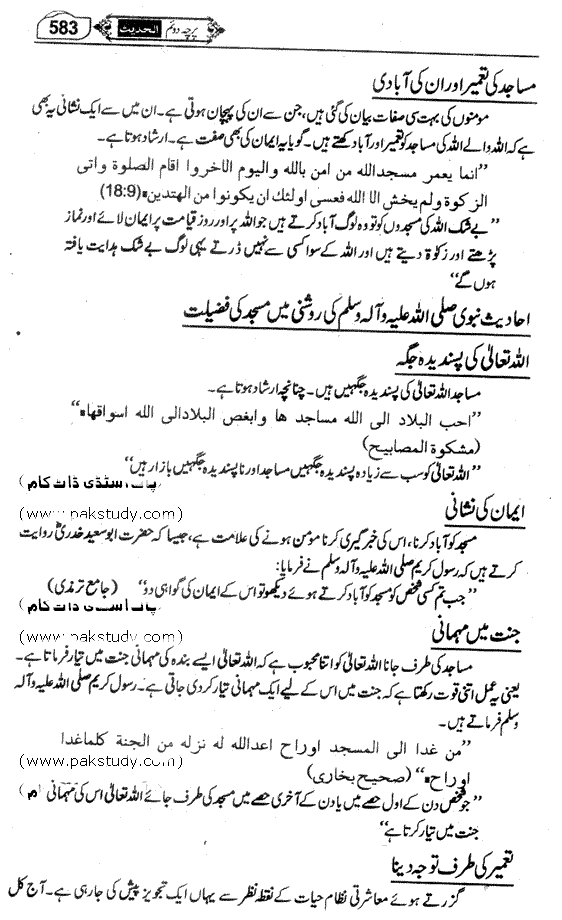 583 پرچہ دوئم الحدیث
مساجد کی تعمیر اور ان کی آبادی
مومنوں کی بہت سی صفات بیان کی گئی ہیں، جن سے ان کی پہچان ہوتی ہے۔ ان میں سے ایک نشانی یہ بھی
ہے کہ اللہ والے اللہ کی مساجد کو تعمیر اور آباد رکھتے ہیں۔ گویا یہ ایمان کی بھی صفت ہے۔ ارشاد ہوتا ہے۔
”انما یعمر مسجداللہ من امن باللہ والیوم الاخروا اقام الصلوۃ واتی
الزکوۃ ولم یخش الا اللہ فعسی اولئک ان یکونوا من الھتدین۔(18:9)
”بے شک اللہ کی مسجدوں کو تو وہ لوگ آباد کرتے ہیں جو اللہ پر اور روز قیامت پر ایمان لائے اور نماز
پڑھتے اور زکوٰۃ دیتے ہیں اور اللہ کے سوا کسی سے نہیں ڈرتے یہی لوگ بے شک ہدایت یافتہ
ہوں گے“
احادیث نبوی صلی اللہ علیہ وآلہ وسلم کی روشنی میں مسجد کی فضیلت
اللہ تعالیٰ کی پسندیدہ جگہ
مساجد اللہ تعالیٰ کی پسندیدہ جگہیں ہیں۔ چنانچہ ارشاد ہوتا ہے۔
”احب البلاد الی اللہ مساجد ھا وابغص البلادالی اللہ اسواقھا۔“
(مشکوۃ المصابیح)
”اللہ تعالیٰ کو سب سے زیادہ پسندیدہ جگہیں مساجد اور ناپسندیدہ جگہیں بازار ہیں“
پاک اسٹڈی ڈاٹ کام)
ایمان کی نشانی
(www.pakstudy.com)
مسجد کو آباد کرنا، اس کی خبر گیری کرنا مومن ہونے کی علامت ہے، جیسا کہ حضرت ابو سعید خدریؓ روایت
کرتے ہیں کہ رسول کریم صلی اللہ علیہ وآلہ وسلم نے فرمایا:
”جب تم کسی شخص کو مسجد کو آباد کرتے ہوئے دیکھو تو اس کے ایمان کی گواہی دو“ (جامع ترمذی)
پاک اسٹڈی ڈاٹ کام)
جنت میں مہمانی
(www.pakstudy.com)
مساجد کی طرف جانا اللہ تعالیٰ کو اتنا محبوب ہے کہ اللہ تعالیٰ ایسے بندہ کی مہمانی جنت میں تیار فرماتا ہے۔
یعنی یہ عمل اتنی قوت رکھتا ہے کہ جنت میں اس کے لیے ایک مہمانی تیار کر دی جاتی ہے۔ رسول کریم صلی اللہ علیہ وآلہ
وسلم فرماتے ہیں۔
”من غدا الی المسجد اوراح اعداللہ لہ نزلہ من الجنۃ کلماغدا
اوراح۔“ (صحیح بخاری)
(www.pakstudy.com)
”جو شخص دن کے اول حصے میں یا دن کے آخری حصے میں مسجد کی طرف جائے اللہ تعالیٰ اس کی مہمانی
جنت میں تیار کرتا ہے“
تعمیر کی طرف توجہ دینا
گزرتے ہوئے معاشرتی نظام حیات کے نقطۂ نظر سے یہاں ایک تجویز پیش کی جا رہی ہے۔ آج کل